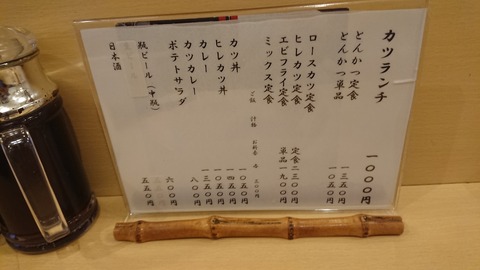 カツランチ 一〇〇〇円
とんかつ定食 一三五〇円
とんかつ単品 一〇五〇円
ロースカツ定食
ヒレカツ定食 定食二三〇〇円
エビフライ定食 単品一九〇〇円
ミックス定食
ご飯 汁物 お新香 各 二〇〇円
カツ丼 一〇五〇円
ヒレカツ丼 一四五〇円
カレー 八〇〇円
カツカレー 一三五〇円
ポテトサラダ 六〇〇円
瓶ビール(中瓶)
日本酒 五五〇円